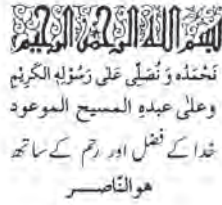 بسم الله الرحمن الرحيم
نَحْمَدُه وَ نُصَلِّى عَلٰى رَسُوْلِهِ الْكَرِيْمِ
وعلٰى عبده المسيح الموعود
خدا کے فضل اور رحم کے ساتھ
هوالنّاصر